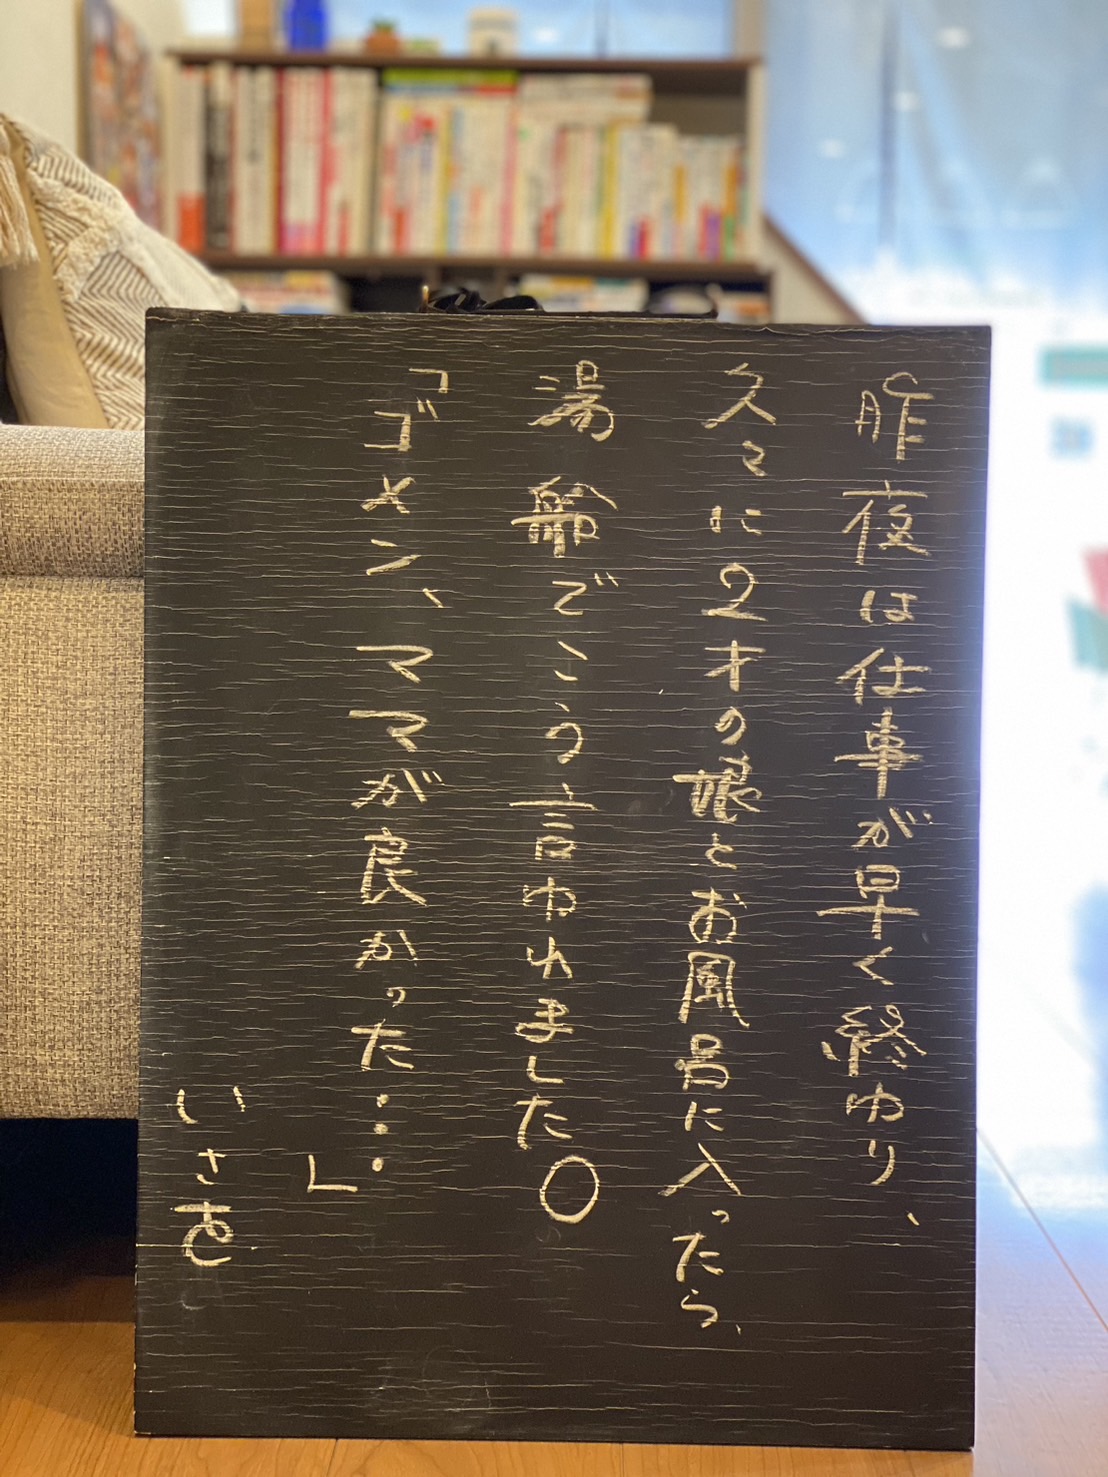 昨夜は仕事が早く終わり、
久々に2才の娘とお風呂に入ったら、
湯船でこう言われました。
「ゴメン、ママが良かった・・・」
いさを